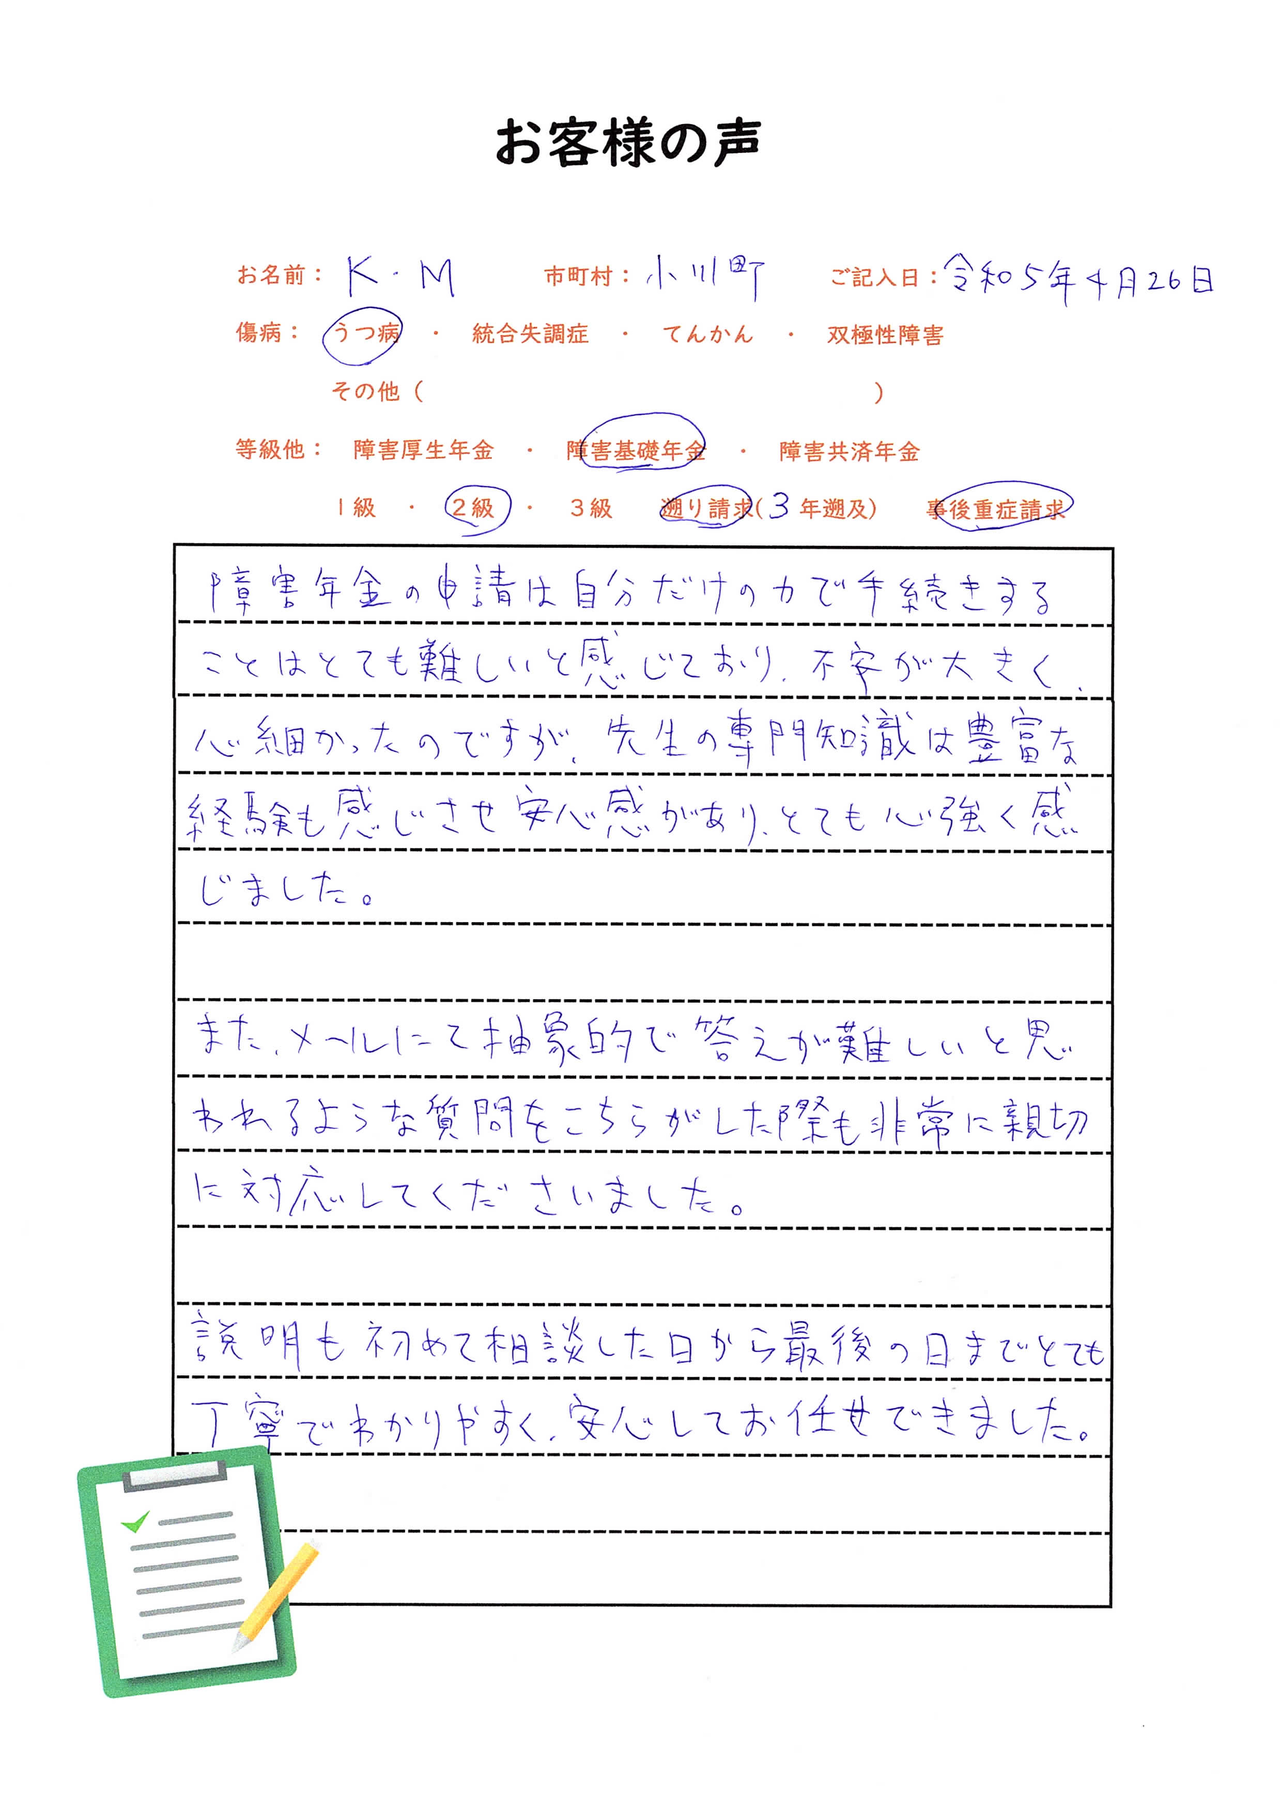 お客様の声
お名前： K・M 市町村： 小川町 ご記入日：令和5年4月26日
傷病： うつ病 ・ 統合失調症 ・ てんかん ・ 双極性障害
その他（ ）
等級他： 障害厚生年金 ・ 障害基礎年金 ・ 障害共済年金
1級 ・ 2級 ・ 3級 遡り請求(3年遡及) 事後重症請求
障害年金の申請は自分だけの力で手続きする
ことはとても難しいと感じており、不安が大きく、
心細かったのですが、先生の専門知識は豊富な
経験も感じさせ安心感があり、とても心強く感
じました。
また、メールにて抽象的で答えが難しいと思
われるような質問をこちらがした際も非常に親切
に対応してくださいました。
説明も初めて相談した日から最後の日までとても
丁寧でわかりやすく、安心してお任せできました。